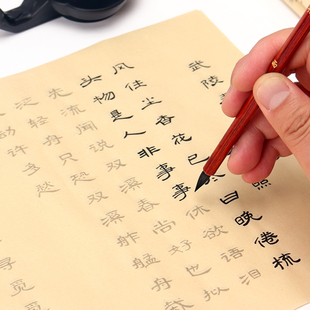 武陵 照
风住尘香花已尽日晚倦梳
头物是人非事事休欲语泪
先流闻说双溪春尚好也拟
泛轻舟只恐双溪舴艋舟载
动许多愁
寻觅